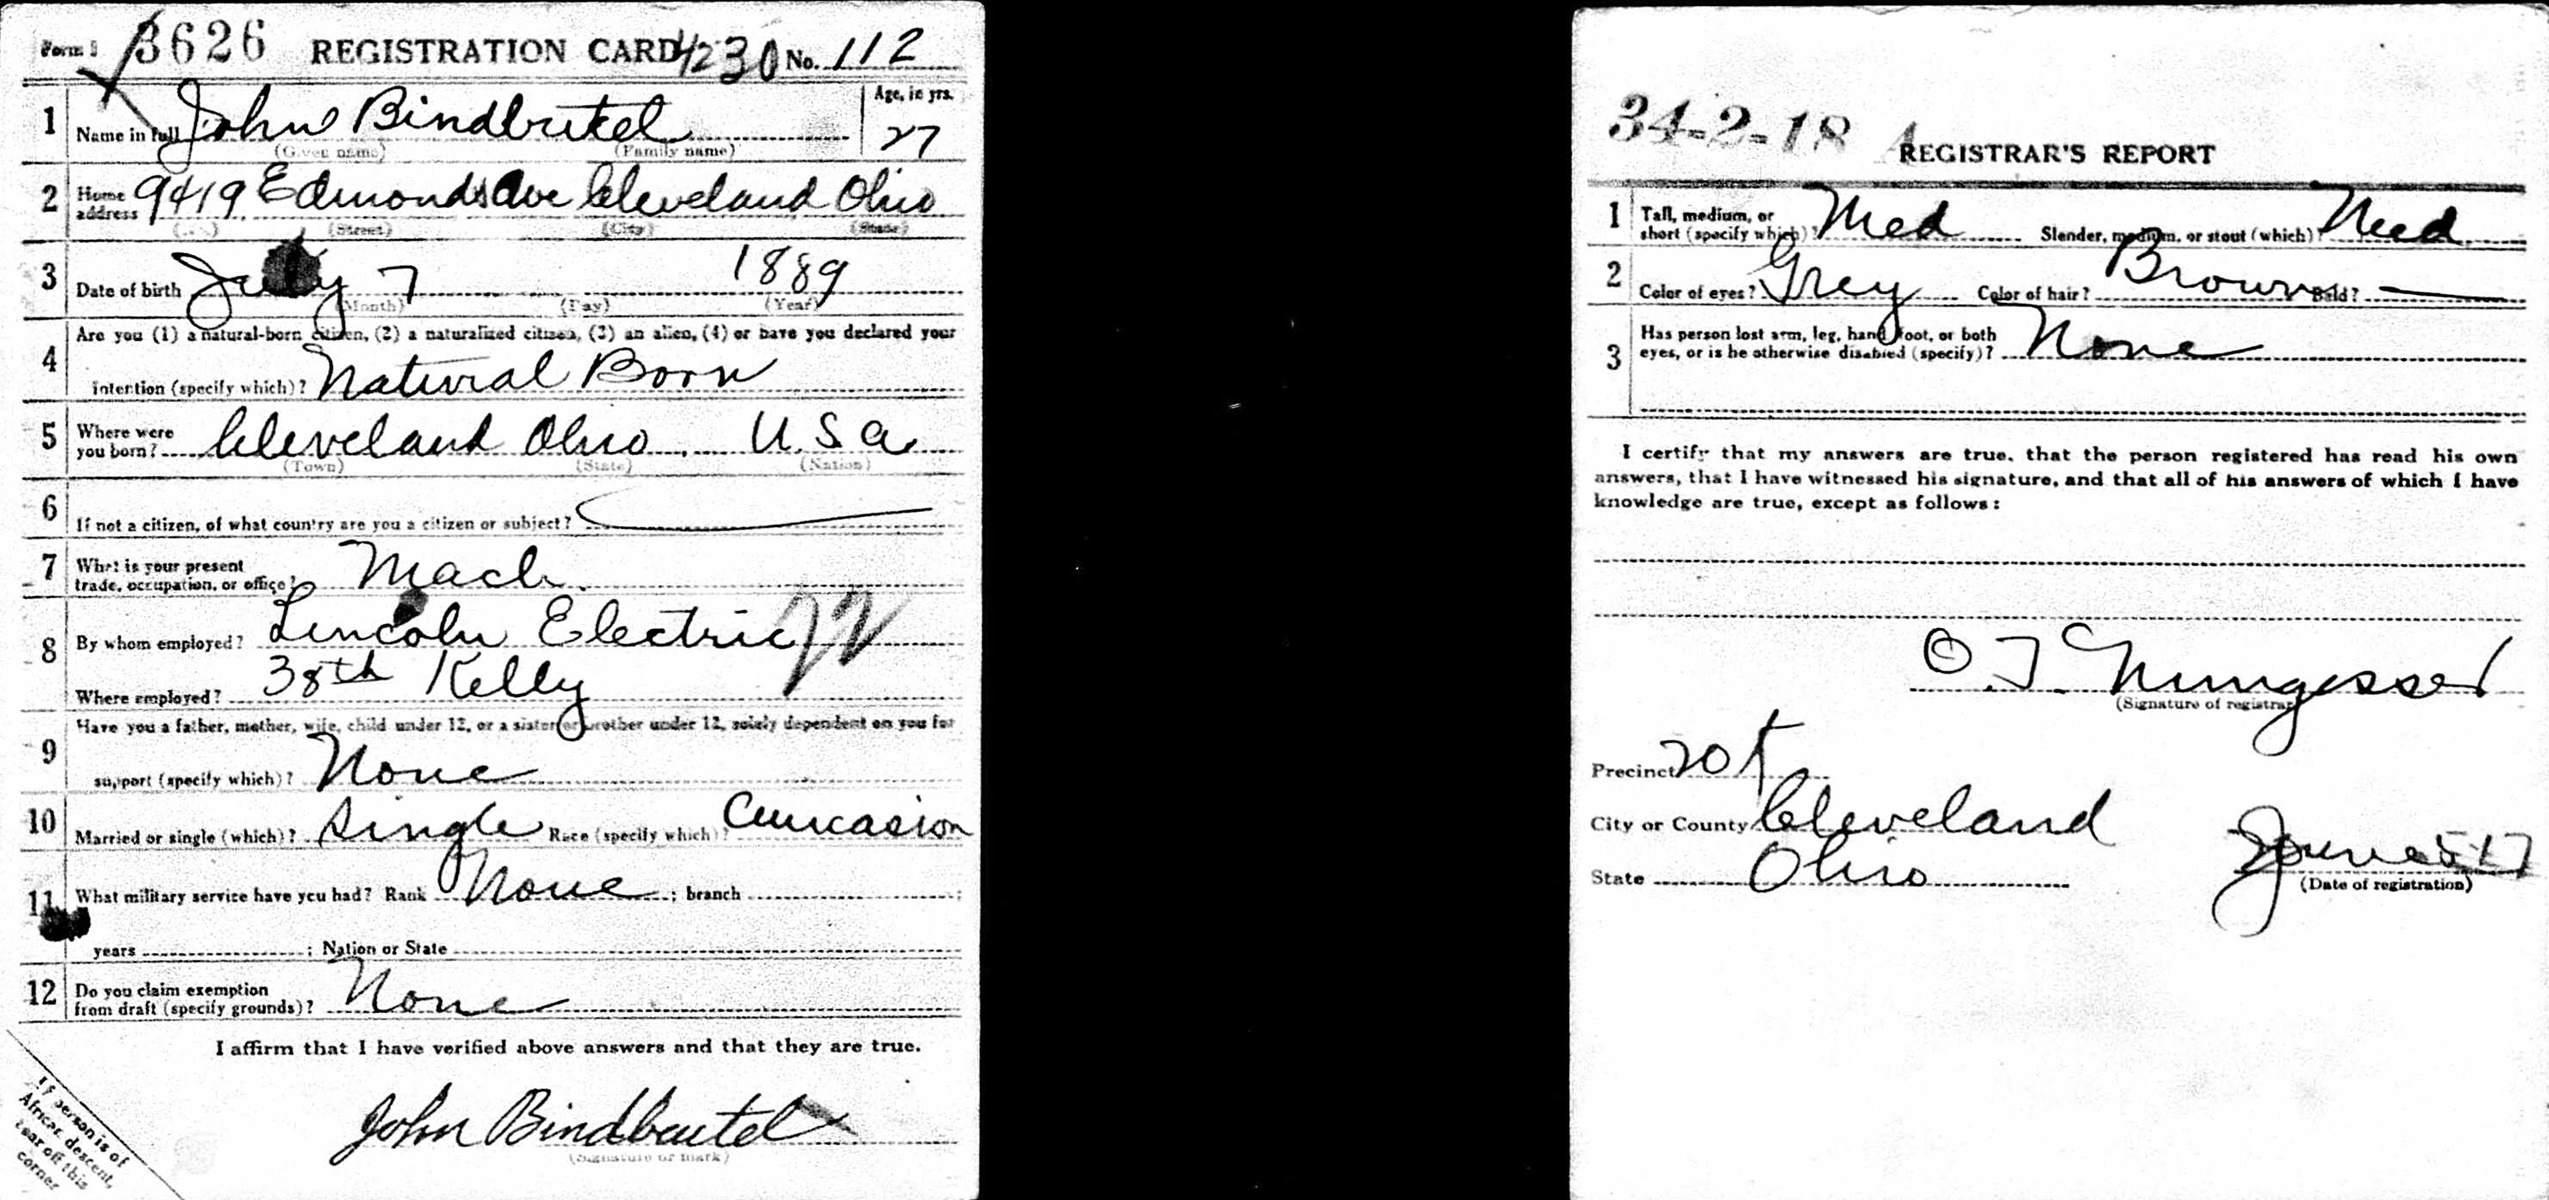 Form 1 3626 REGISTRATION CARD 4230 No. 112
1 Name in full John Bindbutel Age, in yrs. 27
(Given name) (Family name)
2 Home address 9419 Edmonds Ave Cleveland Ohio
(Street) (City) (State)
3 Date of birth July 7 1889
(Month) (Day) (Year)
4 Are you (1) a natural-born citizen, (2) a naturalized citizen, (3) an alien, (4) or have you declared your
intention (specify which)? Natural Born
5 Where were you born? Cleveland Ohio. U.S a
(Town) (State) (Nation)
6 If not a citizen, of what country are you a citizen or subject?
7 What is your present
trade, occupation, or office? Mach.
8 By whom employed? Lincoln Electric
Where employed? 38th Kelly
9 Have you a father, mother, wife, child under 12, or a sister or brother under 12, solely dependent on you for
support (specify which)? None
10 Married or single (which)? Single Race (specify which)? Caucasion
11 What military service have you had? Rank None ; branch ;
years ; Nation or State
12 Do you claim exemption
from draft (specify grounds)? None
I affirm that I have verified above answers and that they are true.
John Bindbeutel
(Signature or mark)
If person is of
African descent,
tear off this
corner
34-2-18 A
REGISTRAR'S REPORT
1 Tall, medium, or
short (specify which)? Med Slender, medium, or stout (which)? Med
2 Color of eyes? Grey Color of hair? Brown Bald? —
3 Has person lost arm, leg, hand, foot, or both
eyes, or is he otherwise disabled (specify)? None
I certify that my answers are true, that the person registered has read his own
answers, that I have witnessed his signature, and that all of his answers of which I have
knowledge are true, except as follows:
O.T. Nungesser
(Signature of registrar)
Precinct 20 T
City or County Cleveland
State Ohio
June 5 17
(Date of registration)